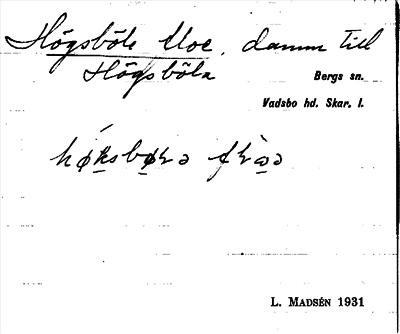 Högsböle Moe, damm till
Högsböla
Bergs sn.
Vadsbo hd. Skar. l.
L. MADSÉN 1931